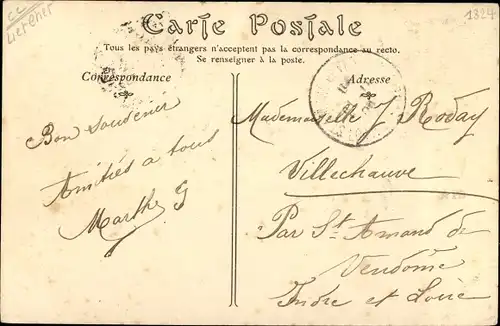 CC
Liefener
1324
Carte Postale
Tous les pays étrangers n'acceptent pas la correspondance au recto.
Se renseigner à la poste.
Correspondance
Adresse
Bon souvenir
Amitiés a tous
Marthe G
Mademoiselle J Roday
Villechauve
Par St Amand de
Vendôme
Indre et Loire